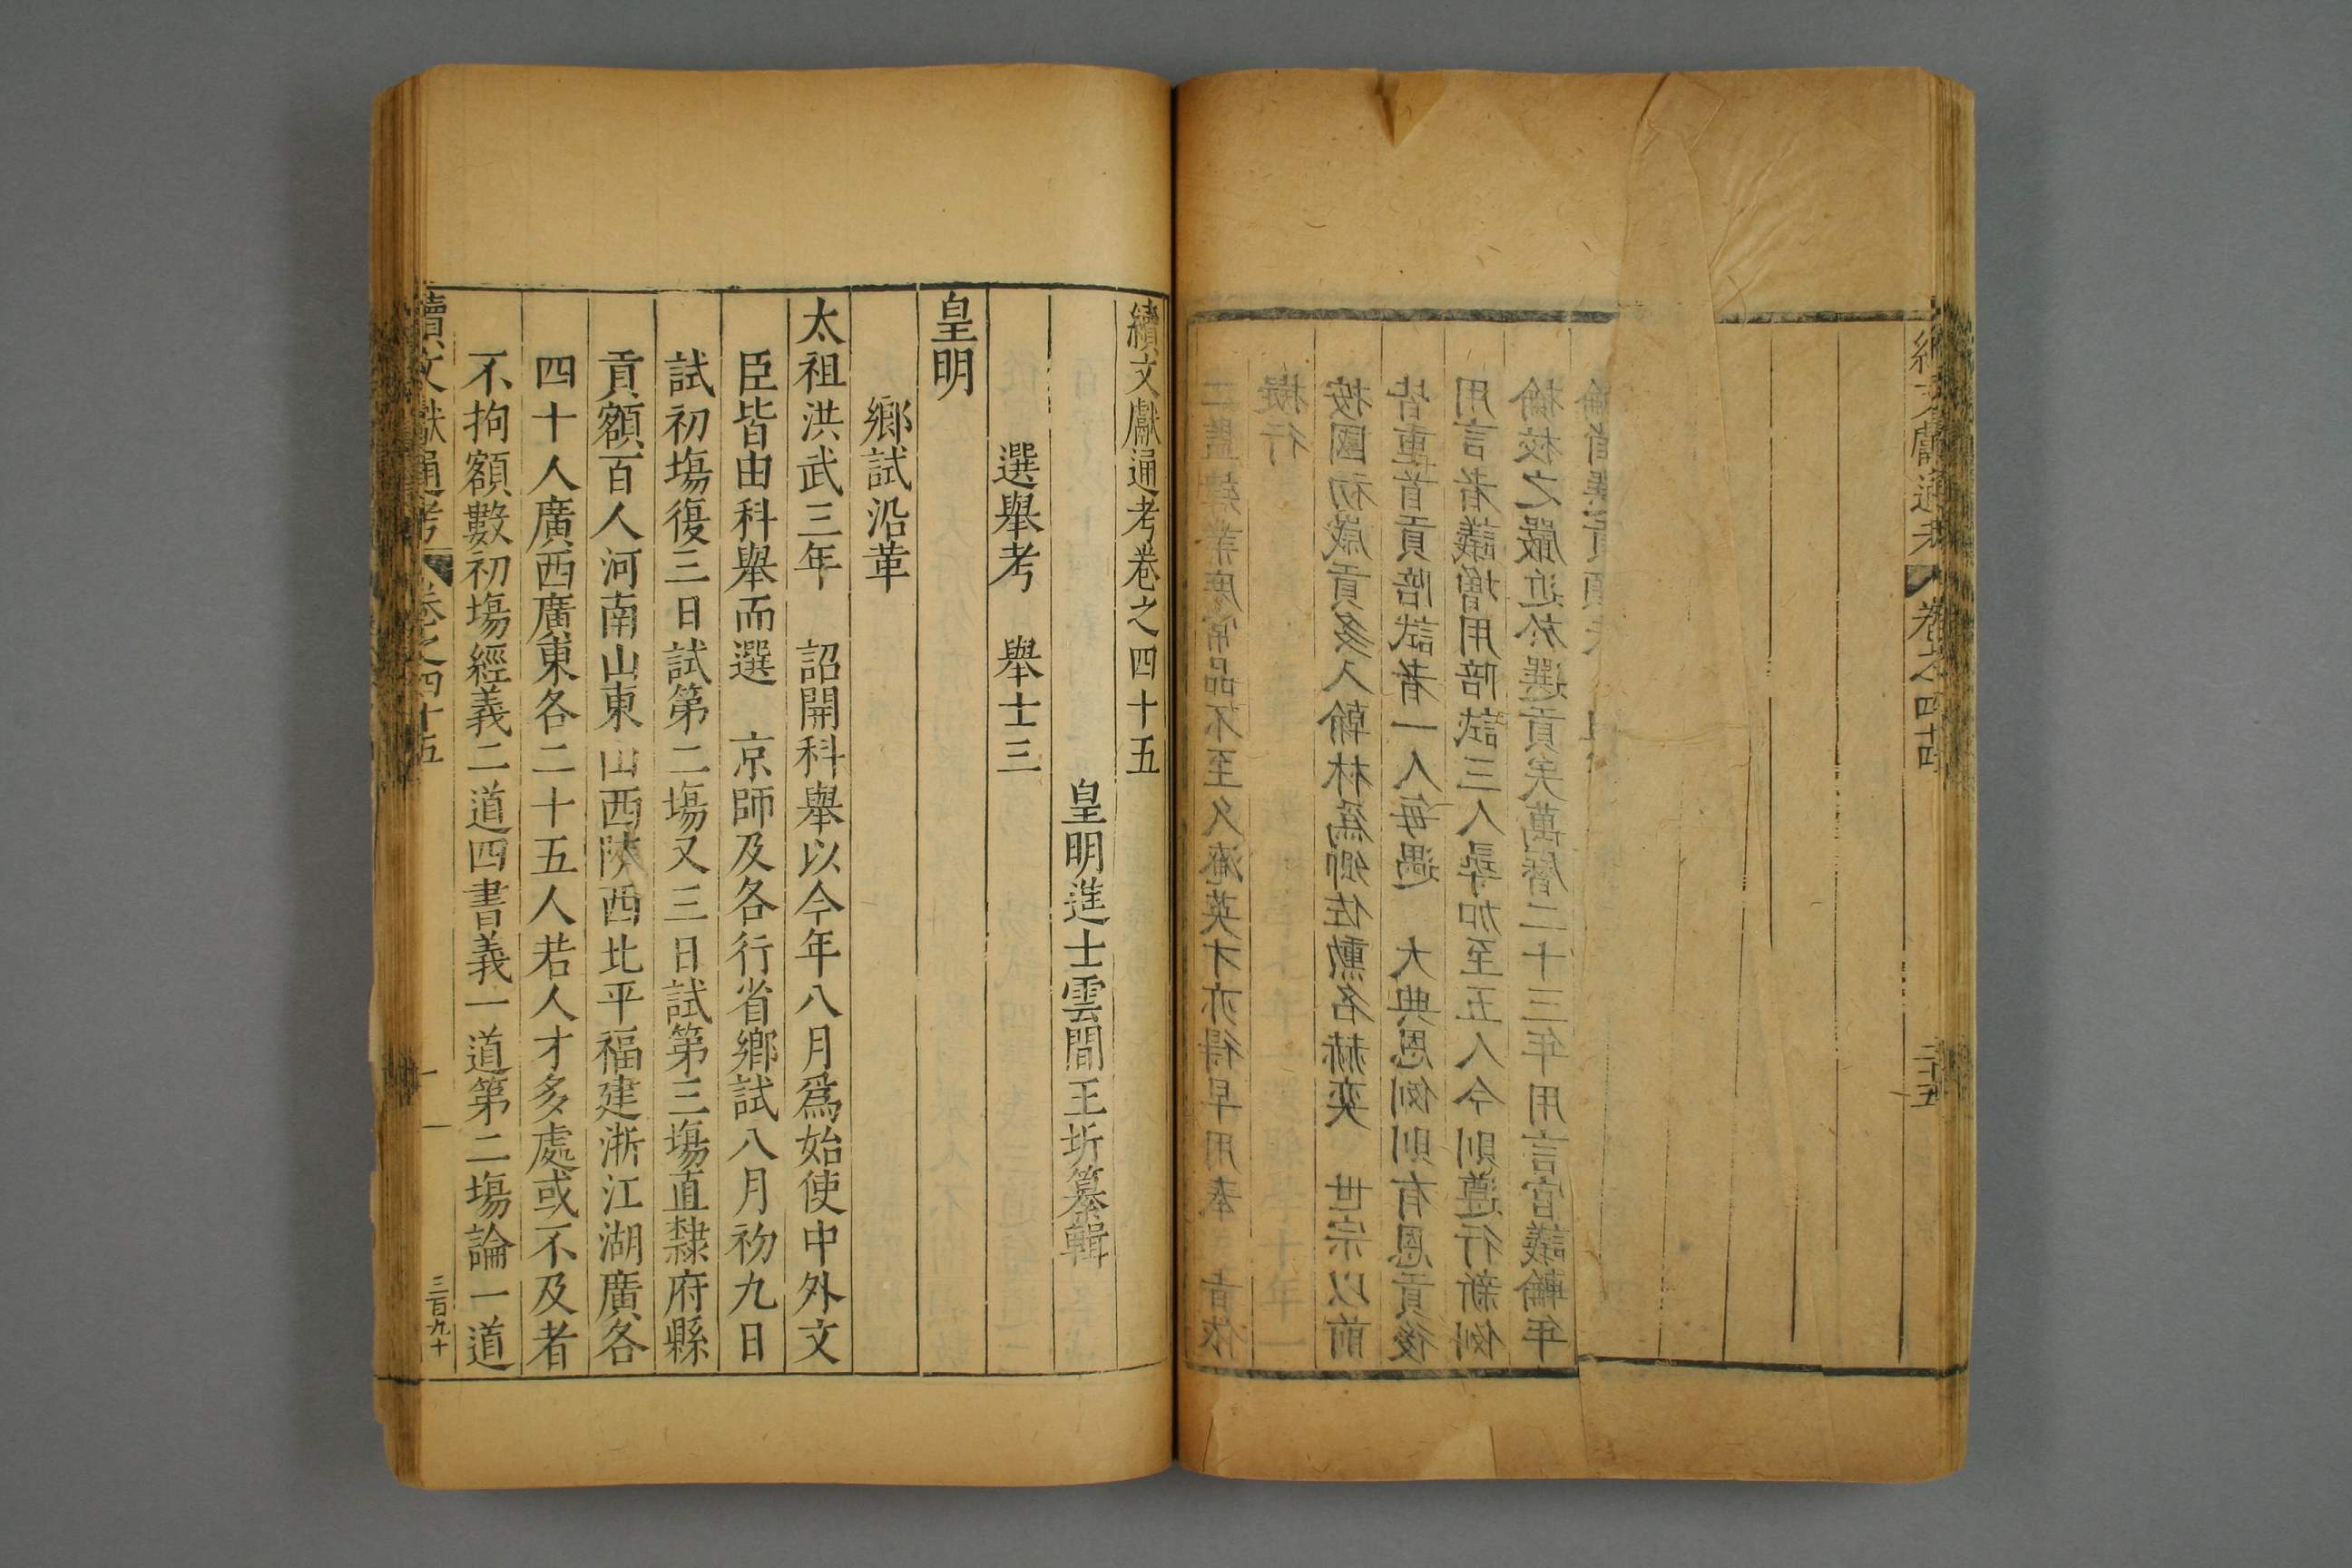 續文獻通考 卷之四十四
二監肄業庶常品不至久淹英才亦得早用奉 旨依
擬行
按國初歲貢多入翰林爲卿佐勳名赫奕 世宗以前
皆重首貢陪試者一人每遇 大典恩例則有恩貢後
用言者議增用陪試三人尋加至五人今則遵行新例
掄校之嚴近於選貢矣萬曆二十三年用言官議輪年
續文獻通考卷之四十五
皇明進士雲間王圻纂輯
選舉考 舉士三
皇明
鄉試沿革
太祖洪武三年 詔開科舉以今年八月爲始使中外文
臣皆由科舉而選 京師及各行省鄉試八月初九日
試初場復三日試第二場又三日試第三場直隸府縣
貢額百人河南山東山西陝西北平福建浙江湖廣各
四十人廣西廣東各二十五人若人才多處或不及者
不拘額數初場經義二道四書義一道第二場論一道
續文獻通考 卷之四十五 一 三百九十